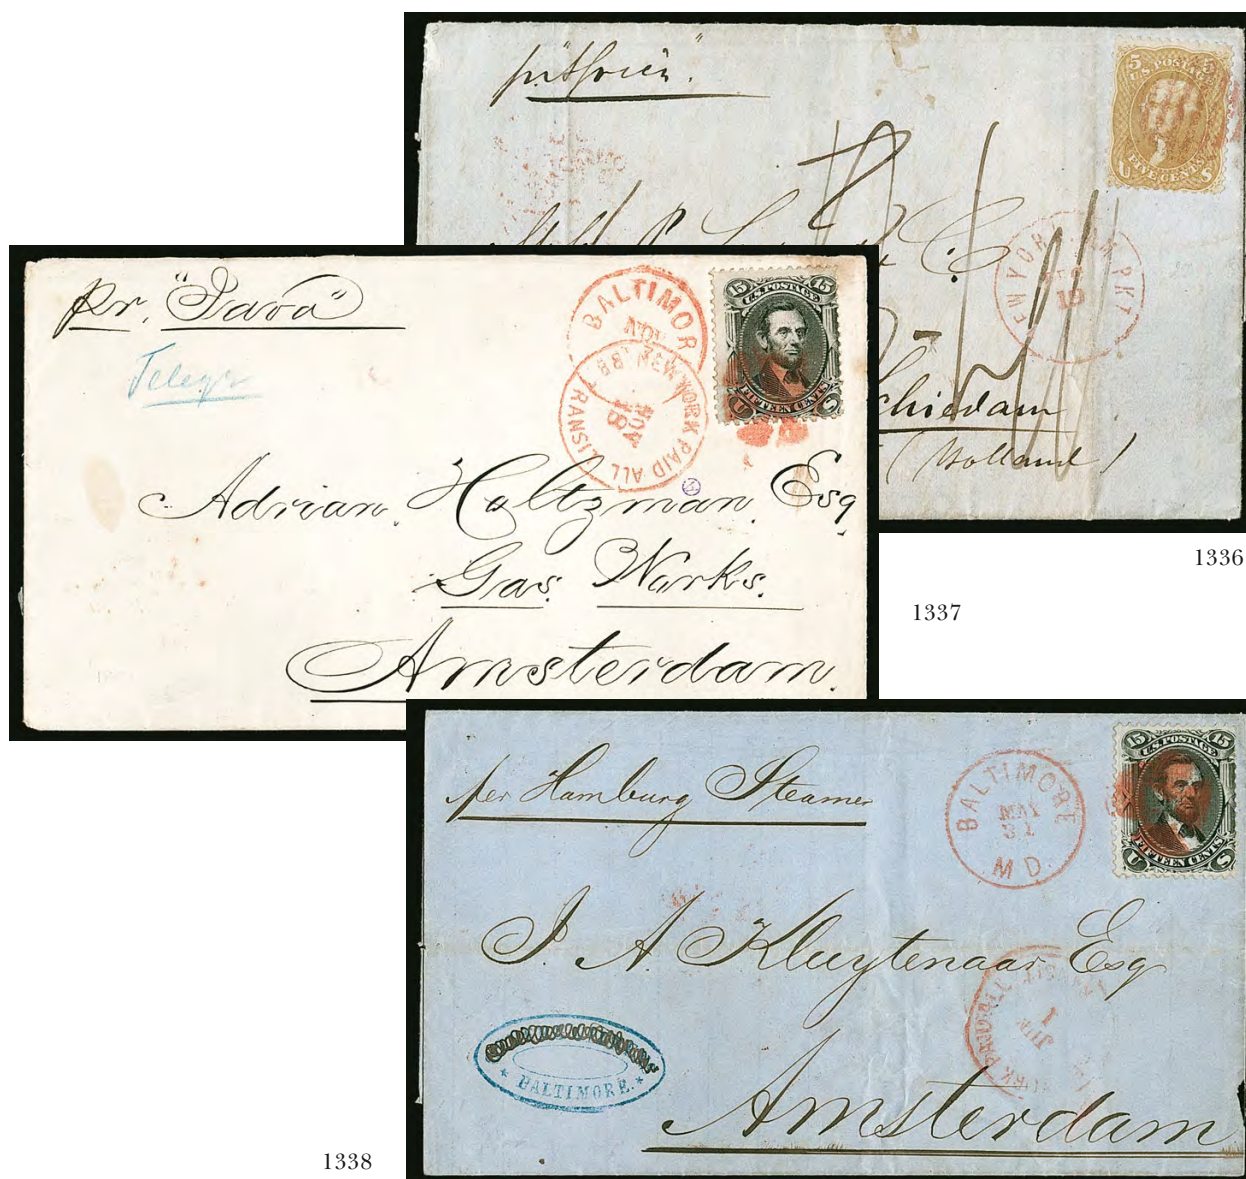 5 5
U.S. POSTAGE
FIVE CENTS
U S
NEW YORK AM PKT
10
Schiedam
(Holland)
1336
pr. "Java"
Telegr
BALTIMOR
NOV
NEW YORK PAID ALL
TRANSIT
NOV
15 15
U.S. POSTAGE
FIFTEEN CENTS
U S
Adrian. Holtzman. Esq.
Gas. Works.
Amsterdam.
1337
per Hamburg Steamer
BALTIMORE
MAY
31
MD.
15 15
U.S. POSTAGE
FIFTEEN CENTS
U S
J. A Kluytenaar Esq
PAID ALL
JUN
1
* BALTIMORE. *
Amsterdam
1338